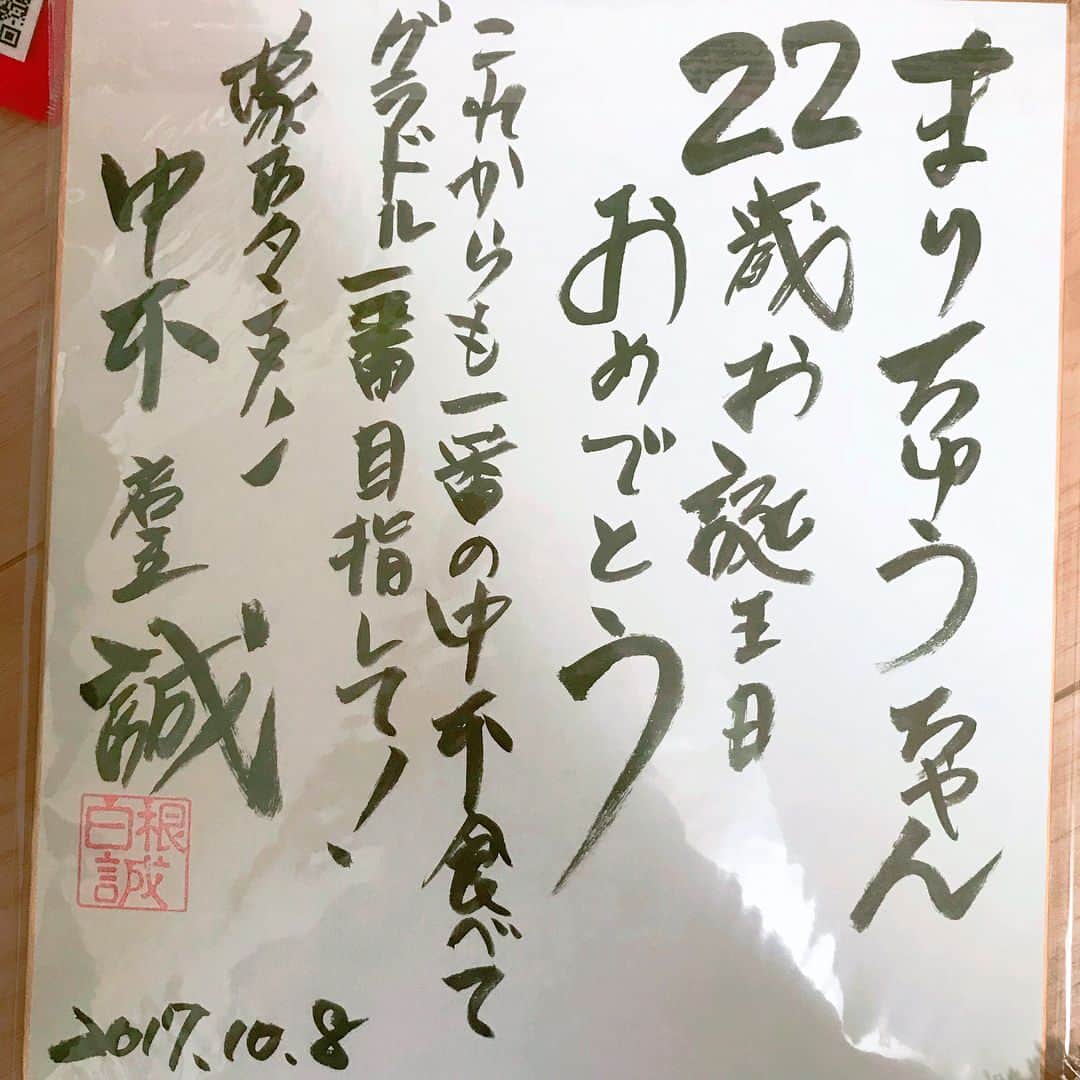 まりちゅうちゃん
22歳お誕生日
おめでとう
これからも一番の中本食べて
グラドル一番目指して！
蒙古タンメン
中本 堂 誠
白根誠
2017.10.8